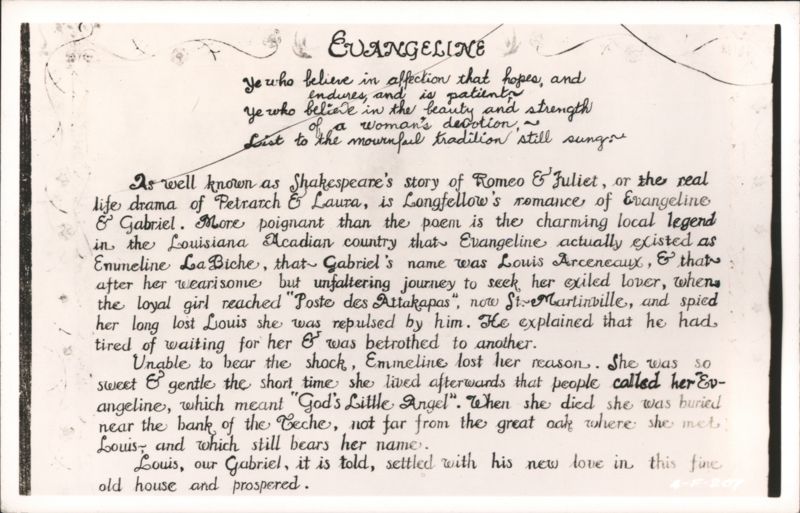 EVANGELINE
Ye who believe in affection that hopes, and
endures, and is patient~
Ye who believe in the beauty and strength
of a woman's devotion,~
List to the mournful tradition still sung~
As well known as Shakespeare's story of Romeo & Juliet, or the real
life drama of Petrarch & Laura, is Longfellow's romance of Evangeline
& Gabriel. More poignant than the poem is the charming local legend
in the Louisiana Acadian country that Evangeline actually existed as
Emmeline LaBiche, that Gabriel's name was Louis Arceneaux, & that
after her wearisome but unfaltering journey to seek her exiled lover, when
the loyal girl reached "Poste des Attakapas", now St. Martinville, and spied
her long lost Louis she was repulsed by him. He explained that he had
tired of waiting for her & was betrothed to another.
Unable to bear the shock, Emmeline lost her reason. She was so
sweet & gentle the short time she lived afterwards that people called her Ev-
angeline, which meant "God's Little Angel". When she died she was buried
near the bank of the Teche, not far from the great oak where she met
Louis- and which still bears her name.
Louis, our Gabriel, it is told, settled with his new love in this fine
old house and prospered.
4-F-207